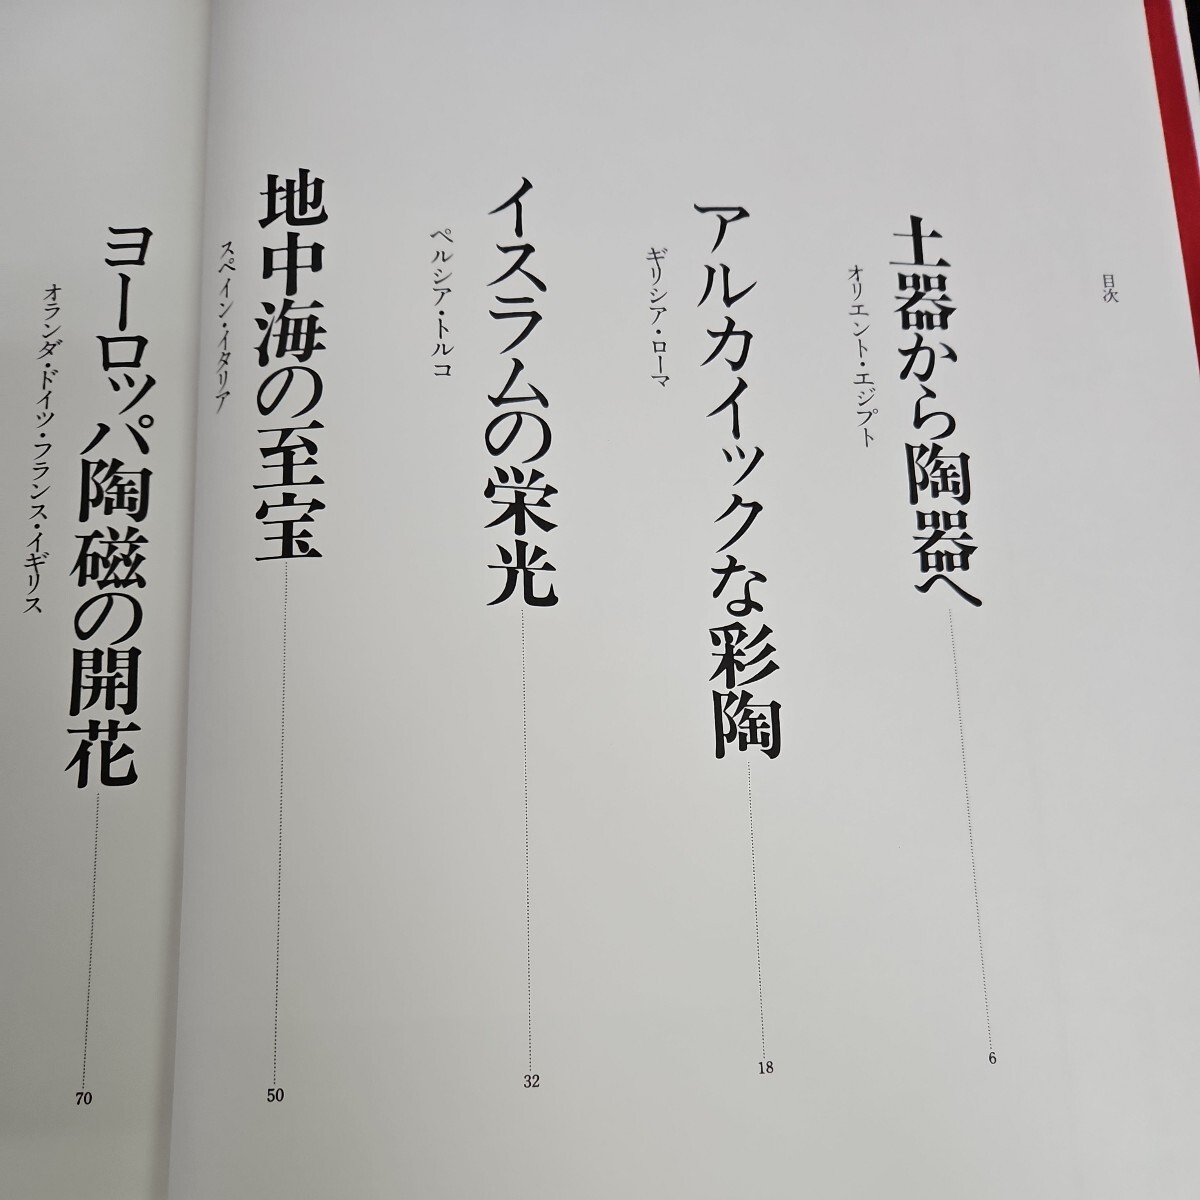 目次
土器から陶器へ
オリエント・エジプト
6
アルカイックな彩陶
ギリシア・ローマ
18
イスラムの栄光
ペルシア・トルコ
32
地中海の至宝
スペイン・イタリア
50
ヨーロッパ陶磁の開花
オランダ・ドイツ・フランス・イギリス
70